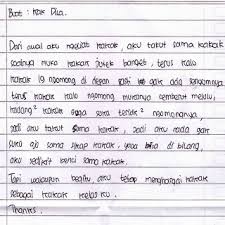 Buat : kak Dila.
Dari awal aku ngeliat kakak, aku takut sama kakak
soalnya muka kakak jutek banget, terus kalo
kakak lg ngomong di depan gak ada senyumnya
terus kakak kalo ngomong mukanya cemberut melulu,
kadang² kakak suka teriak² ngomongnya,
jadi aku takut sama kakak, jadi aku rada gak
suka aja sama sikap kakak, yaaa bisa di bilang,
aku sedikit benci sama kakak.
Tapi walaupun begitu aku tetap menghargai kakak
sebagai kakak kelas ku.
Thanks.